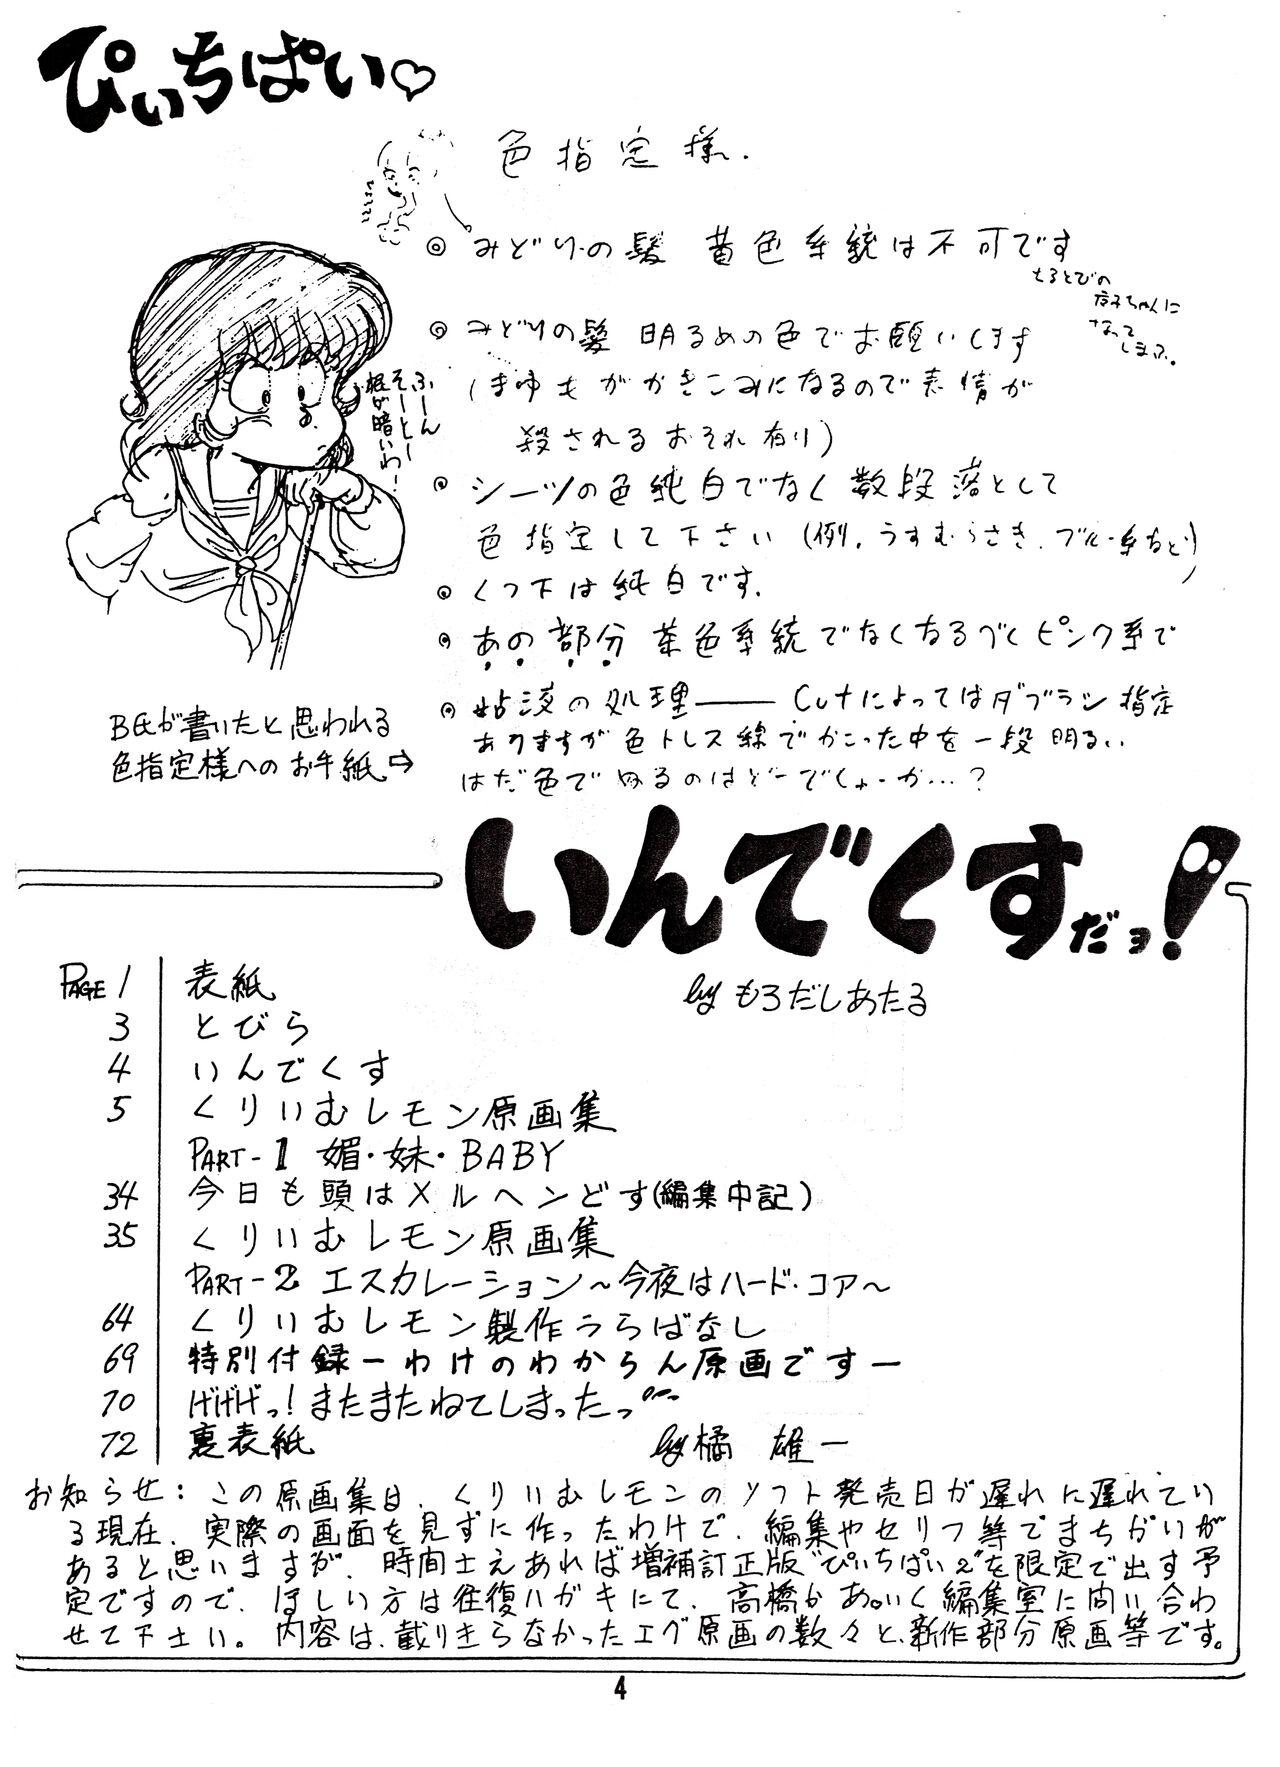 ぴぃちぱい♡
色指定様.
◎ みどりの髪 黄色系統は不可です
なってしまふ。
◎ みどりの髪 明るめの色でお願いします
(まゆもがかきこみになるので表情が
殺されるおそれ有り)
◎ シーツの色純白でなく数段落として
色指定して下さい(例.うすむらさき.ブルー系など)
◎ くつ下は純白です.
◎ あの部分 茶色系統でなくなるべくピンク系で
◎ 粘液の処理―― Cutによってはダブラシ指定
ありますが色トレス線でかこった中を一段明るい
はだ色でぬるのはどーでしょーか…?
ふーん
そーとー
根が暗いわ!
B氏が書いたと思われる
色指定様へのお手紙⇨
いんでくすだョ!
by もろだしあたる
PAGE 1 表紙
3 とびら
4 いんでくす
5 くりいむレモン原画集
PART-1 媚・妹・BABY
34 今日も頭はメルヘンどす(編集中記)
35 くりいむレモン原画集
PART-2 エスカレーション～今夜はハード・コア～
64 くりいむレモン製作うらばなし
69 特別付録ーわけのわからん原画ですー
70 げげげっ!またまたねてしまったっ
72 裏表紙 by 橘 雄一
お知らせ:この原画集は、くりいむレモンのソフト発売日が遅れに遅れてい
る現在、実際の画面を見ずに作ったわけで、編集やセリフ等でまちがいが
あると思いますが、時間士えあれば増補訂正版"ぴぃちぱい2"を限定で出す予
定ですので、ほしい方は往復ハガキにて、高橋かあいく編集室に問い合わ
せて下士い。内容は、載りきらなかったエグ原画の数々と、新作部分原画等です。
4